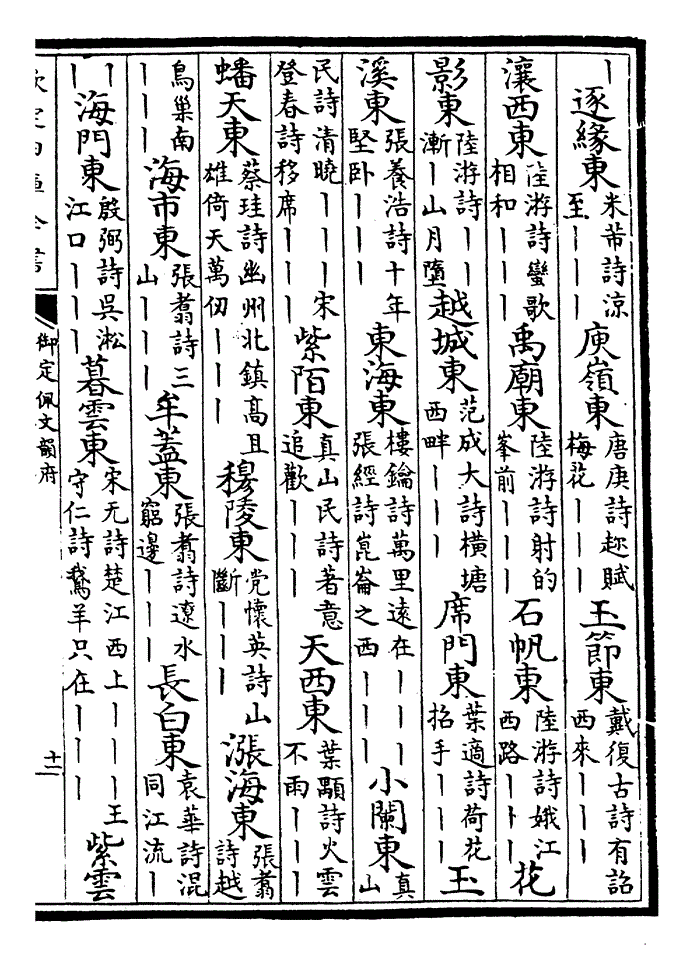 丨逐緣東米芾詩涼至丨丨丨庾嶺東唐庚詩趂賦梅花丨丨丨玉節東戴復古詩有詔西來丨丨丨
瀼西東陸游詩蠻歌相和丨丨丨禹廟東陸游詩射的峯前丨丨丨石帆東陸游詩娥江西路丨丨丨花
影東陸游詩丨丨漸丨山月墮越城東范成大詩橫塘西畔丨丨丨席門東葉適詩荷花招手丨丨丨玉
溪東張養浩詩十年堅卧丨丨丨東海東樓鑰詩萬里遠在丨丨丨張經詩崑崙之西丨丨丨小闌東真山
民詩清曉丨丨丨宋登春詩移席丨丨丨紫陌東真山民詩著意追歡丨丨丨天西東葉顒詩火雲不雨丨丨丨
蟠天東蔡珪詩幽州北鎮高且雄倚天萬仞丨丨丨穆陵東党懷英詩山斷丨丨丨漲海東張翥詩越
鳥巢南丨丨丨海市東張翥詩三山丨丨丨牟蓋東張翥詩遼水窮邊丨丨丨長白東袁華詩混同江流丨
丨丨海門東殷弼詩吳淞江口丨丨丨暮雲東宋无詩楚江西上丨丨丨王守仁詩鵞羊只在丨丨丨紫雲
欽定四庫全書
御定佩文韻府
十二